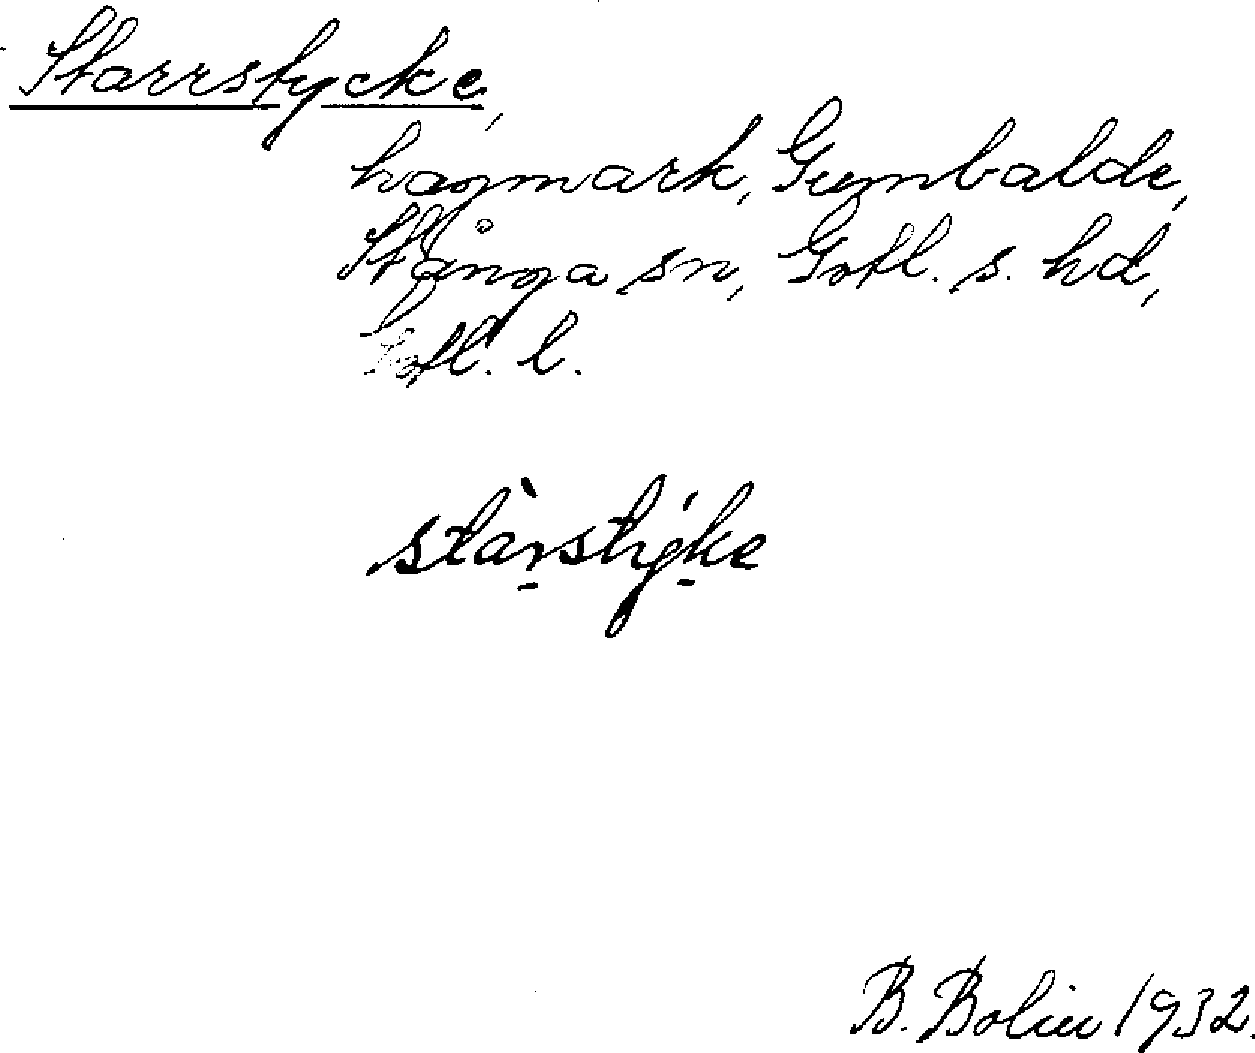 Starrstycke,
hagmark, Gumbalde,
Stånga sn, Gotl. s. hd,
Gotl. l.
stàrstyke
B. Bolin 1932.